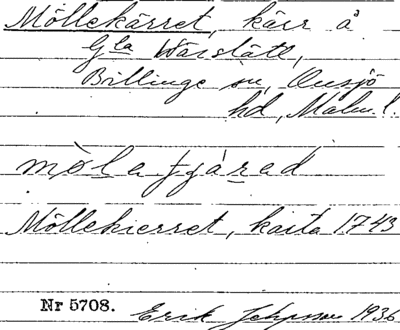 Möllekärret, kärr å
Gla Värslätt,
Billinge sn, Onsjö
hd, Malm. l.
mòlatjàrad
Möllekierret, karta 1743
Nr 5708. Erik 1936